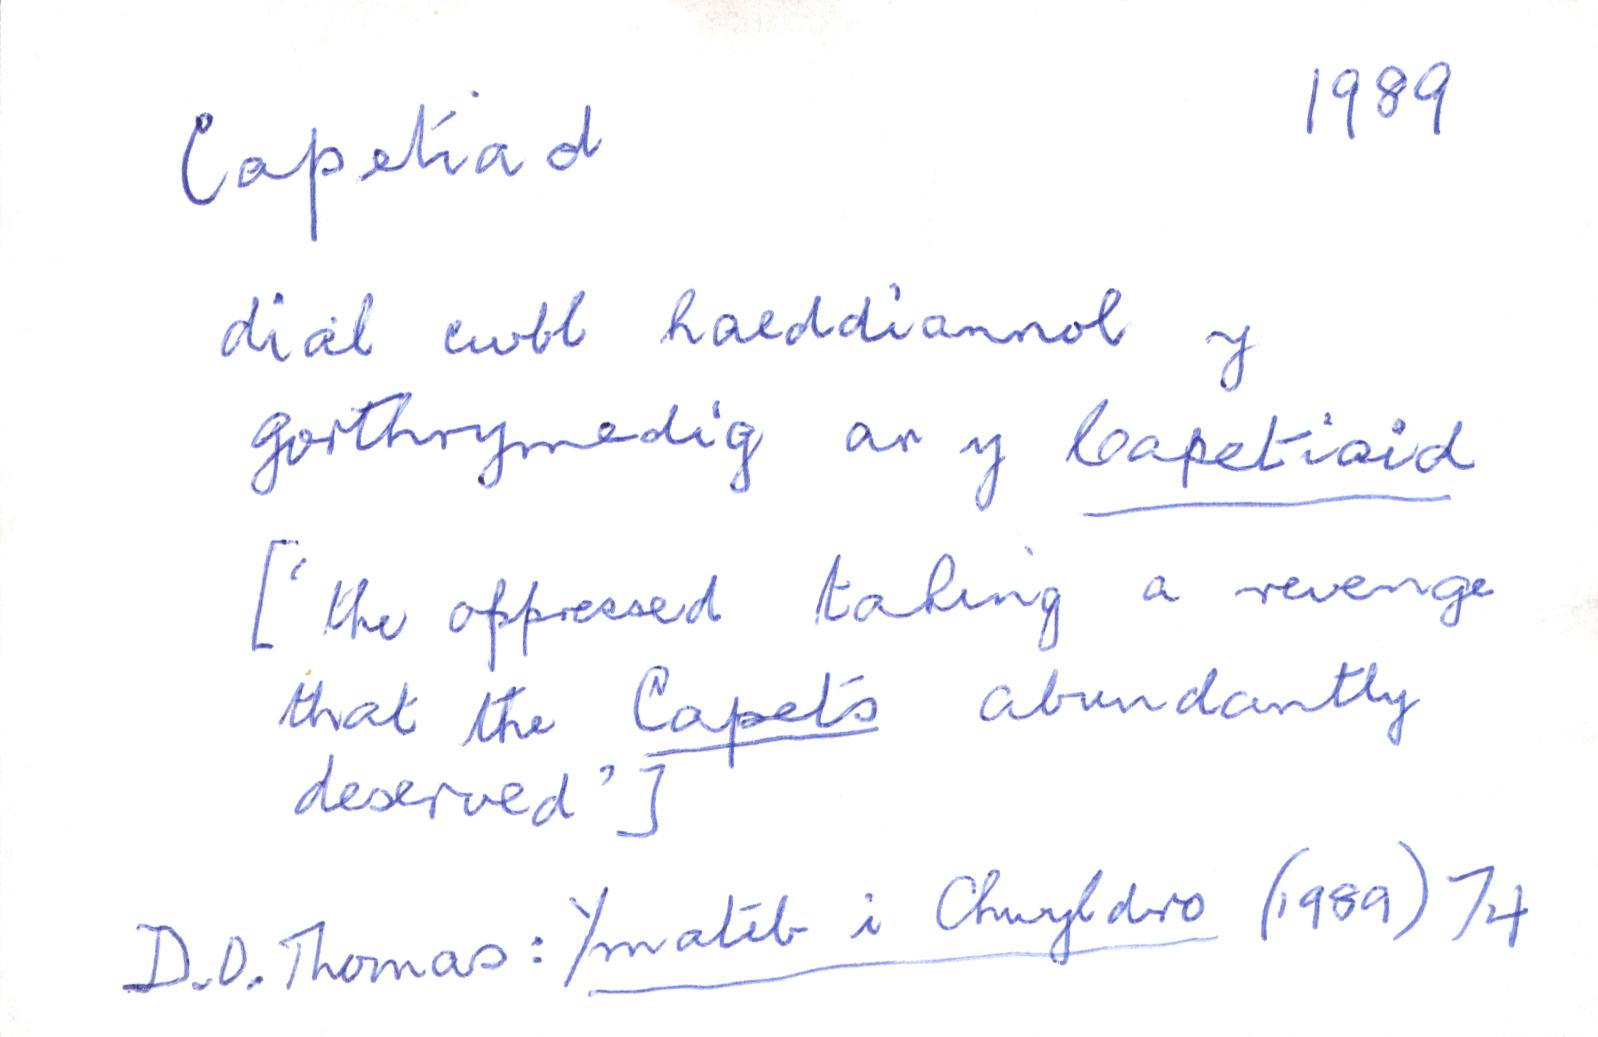 Capetiad 1989
dial cwbl haeddiannol y
gorthrymedig ar y Capetiaid
['the oppressed taking a revenge
that the Capets abundantly
deserved']
D.O. Thomas: Ymateb i Chwyldro (1989) 74